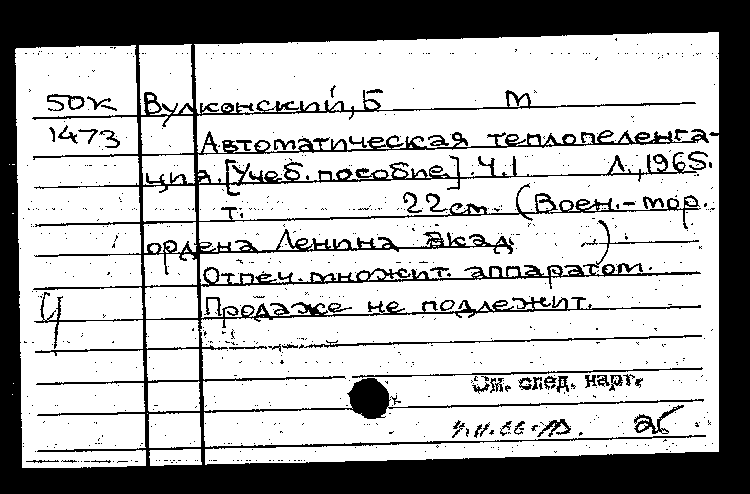 50к Вулконский, Б М
1473 Автоматическая теплопеленга-
ция. [Учеб. пособие]. Ч.1 Л., 1965.
т. 22 см. (Воен.-мор.
ордена Ленина акад. ).
Отпеч. множит. аппаратом.
Ч Продаже не подлежит.
См. след. карт.